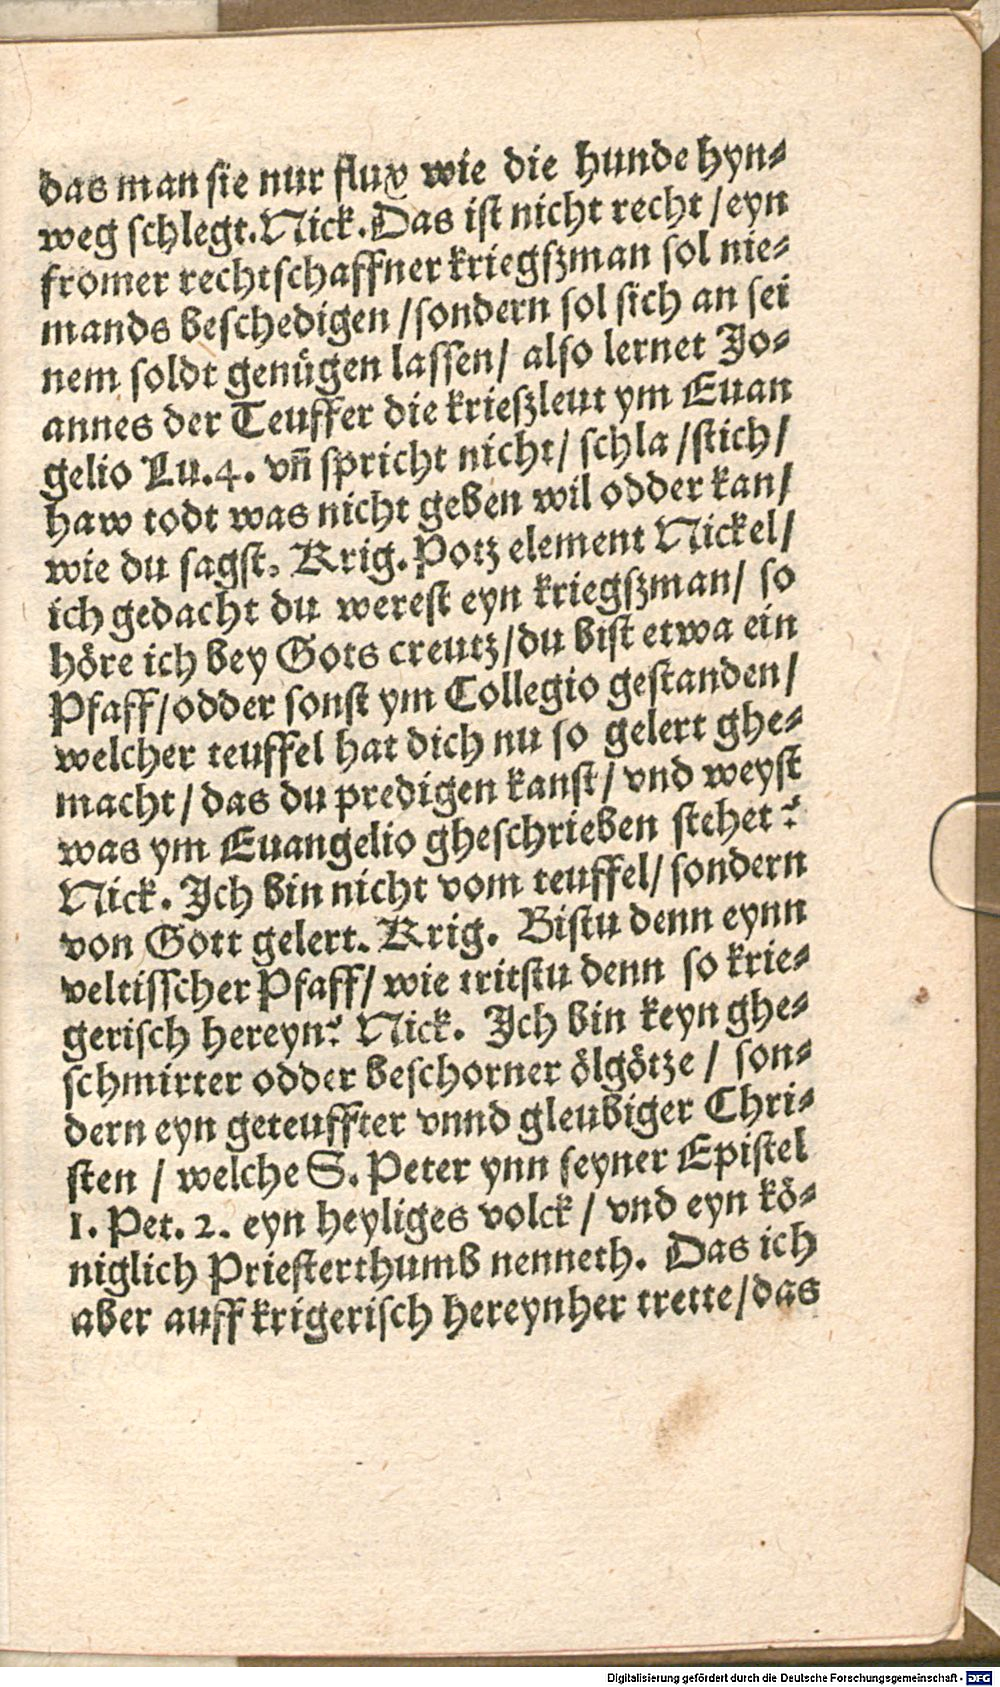 das man sie nur flux wie die hunde hyn⸗
weg schlegt. Nick. Das ist nicht recht / eyn
fromer rechtschaffner kriegszman sol nie⸗
mands beschedigen / sondern sol sich an sei
nem soldt genügen lassen / also lernet Jo⸗
annes der Teuffer die krieszleut ym Euan
gelio Lu. 4. vn̄ spricht nicht / schla / stich /
haw todt was nicht geben wil odder kan /
wie du sagst. Krig. Potz element Nickel /
ich gedacht du werest eyn kriegszman / so
höre ich bey Gots creutz / du bist etwa ein
Pfaff / odder sonst ym Collegio gestanden /
welcher teuffel hat dich nu so gelert ghe⸗
macht / das du predigen kanst / vnd weyst
was ym Euangelio gheschrieben stehet?
Nick. Ich bin nicht vom teuffel / sondern
von Gott gelert. Krig. Bistu denn eynn
veltisscher Pfaff / wie tritstu denn so krie⸗
gerisch hereyn? Nick. Ich bin keyn ghe⸗
schmirter odder beschorner ölgötze / son⸗
dern eyn geteuffter vnnd gleubiger Chri⸗
sten / welche S. Peter ynn seyner Epistel
1. Pet. 2. eyn heyliges volck / vnd eyn kö⸗
niglich Priesterthumb nenneth. Das ich
aber auff krigerisch hereynher trette / das
Digitalisierung gefördert durch die Deutsche Forschungsgemeinschaft - DFG